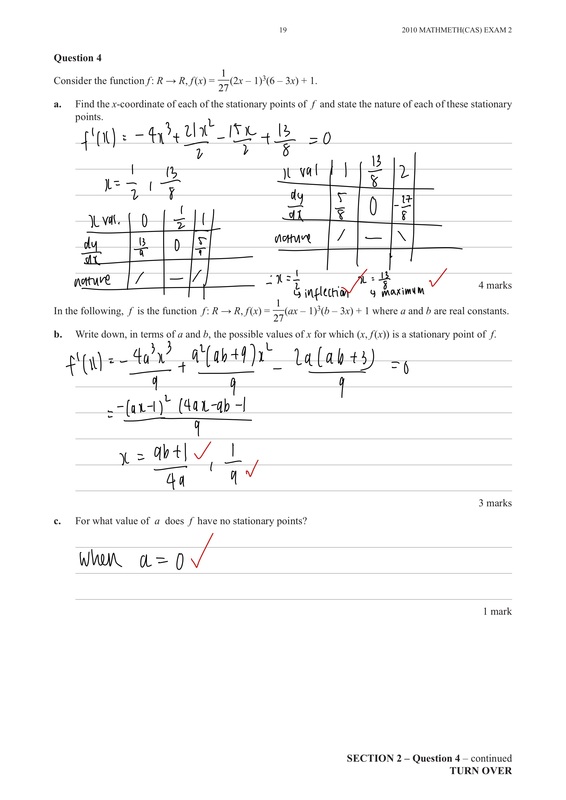 19
2010 MATHMETH(CAS) EXAM 2
Question 4
Consider the function f: R → R, f(x) = 1/27 (2x – 1)³(6 – 3x) + 1.
a. Find the x-coordinate of each of the stationary points of f and state the nature of each of these stationary
points.
f'(x) = -4x³ + 21x²/2 - 15x/2 + 13/8 = 0
x = 1/2, 13/8
x val. 0 1/2 1
dy/dx 13/9 0 5/9
nature / — /
x val 1 13/8 2
dy/dx 5/8 0 -27/8
nature / — \
∴ x = 1/2 ↳ inflection x = 13/8 ↳ maximum
4 marks
In the following, f is the function f: R → R, f(x) = 1/27 (ax – 1)³(b – 3x) + 1 where a and b are real constants.
b. Write down, in terms of a and b, the possible values of x for which (x, f(x)) is a stationary point of f.
f'(x) = -4a³x³/9 + a²(ab+9)x²/9 - 2a(ab+3)/9 = 0
= -(ax-1)² (4ax-ab-1/9
x = ab+1/4a, 1/a
3 marks
c. For what value of a does f have no stationary points?
When a = 0
1 mark
SECTION 2 – Question 4 – continued
TURN OVER